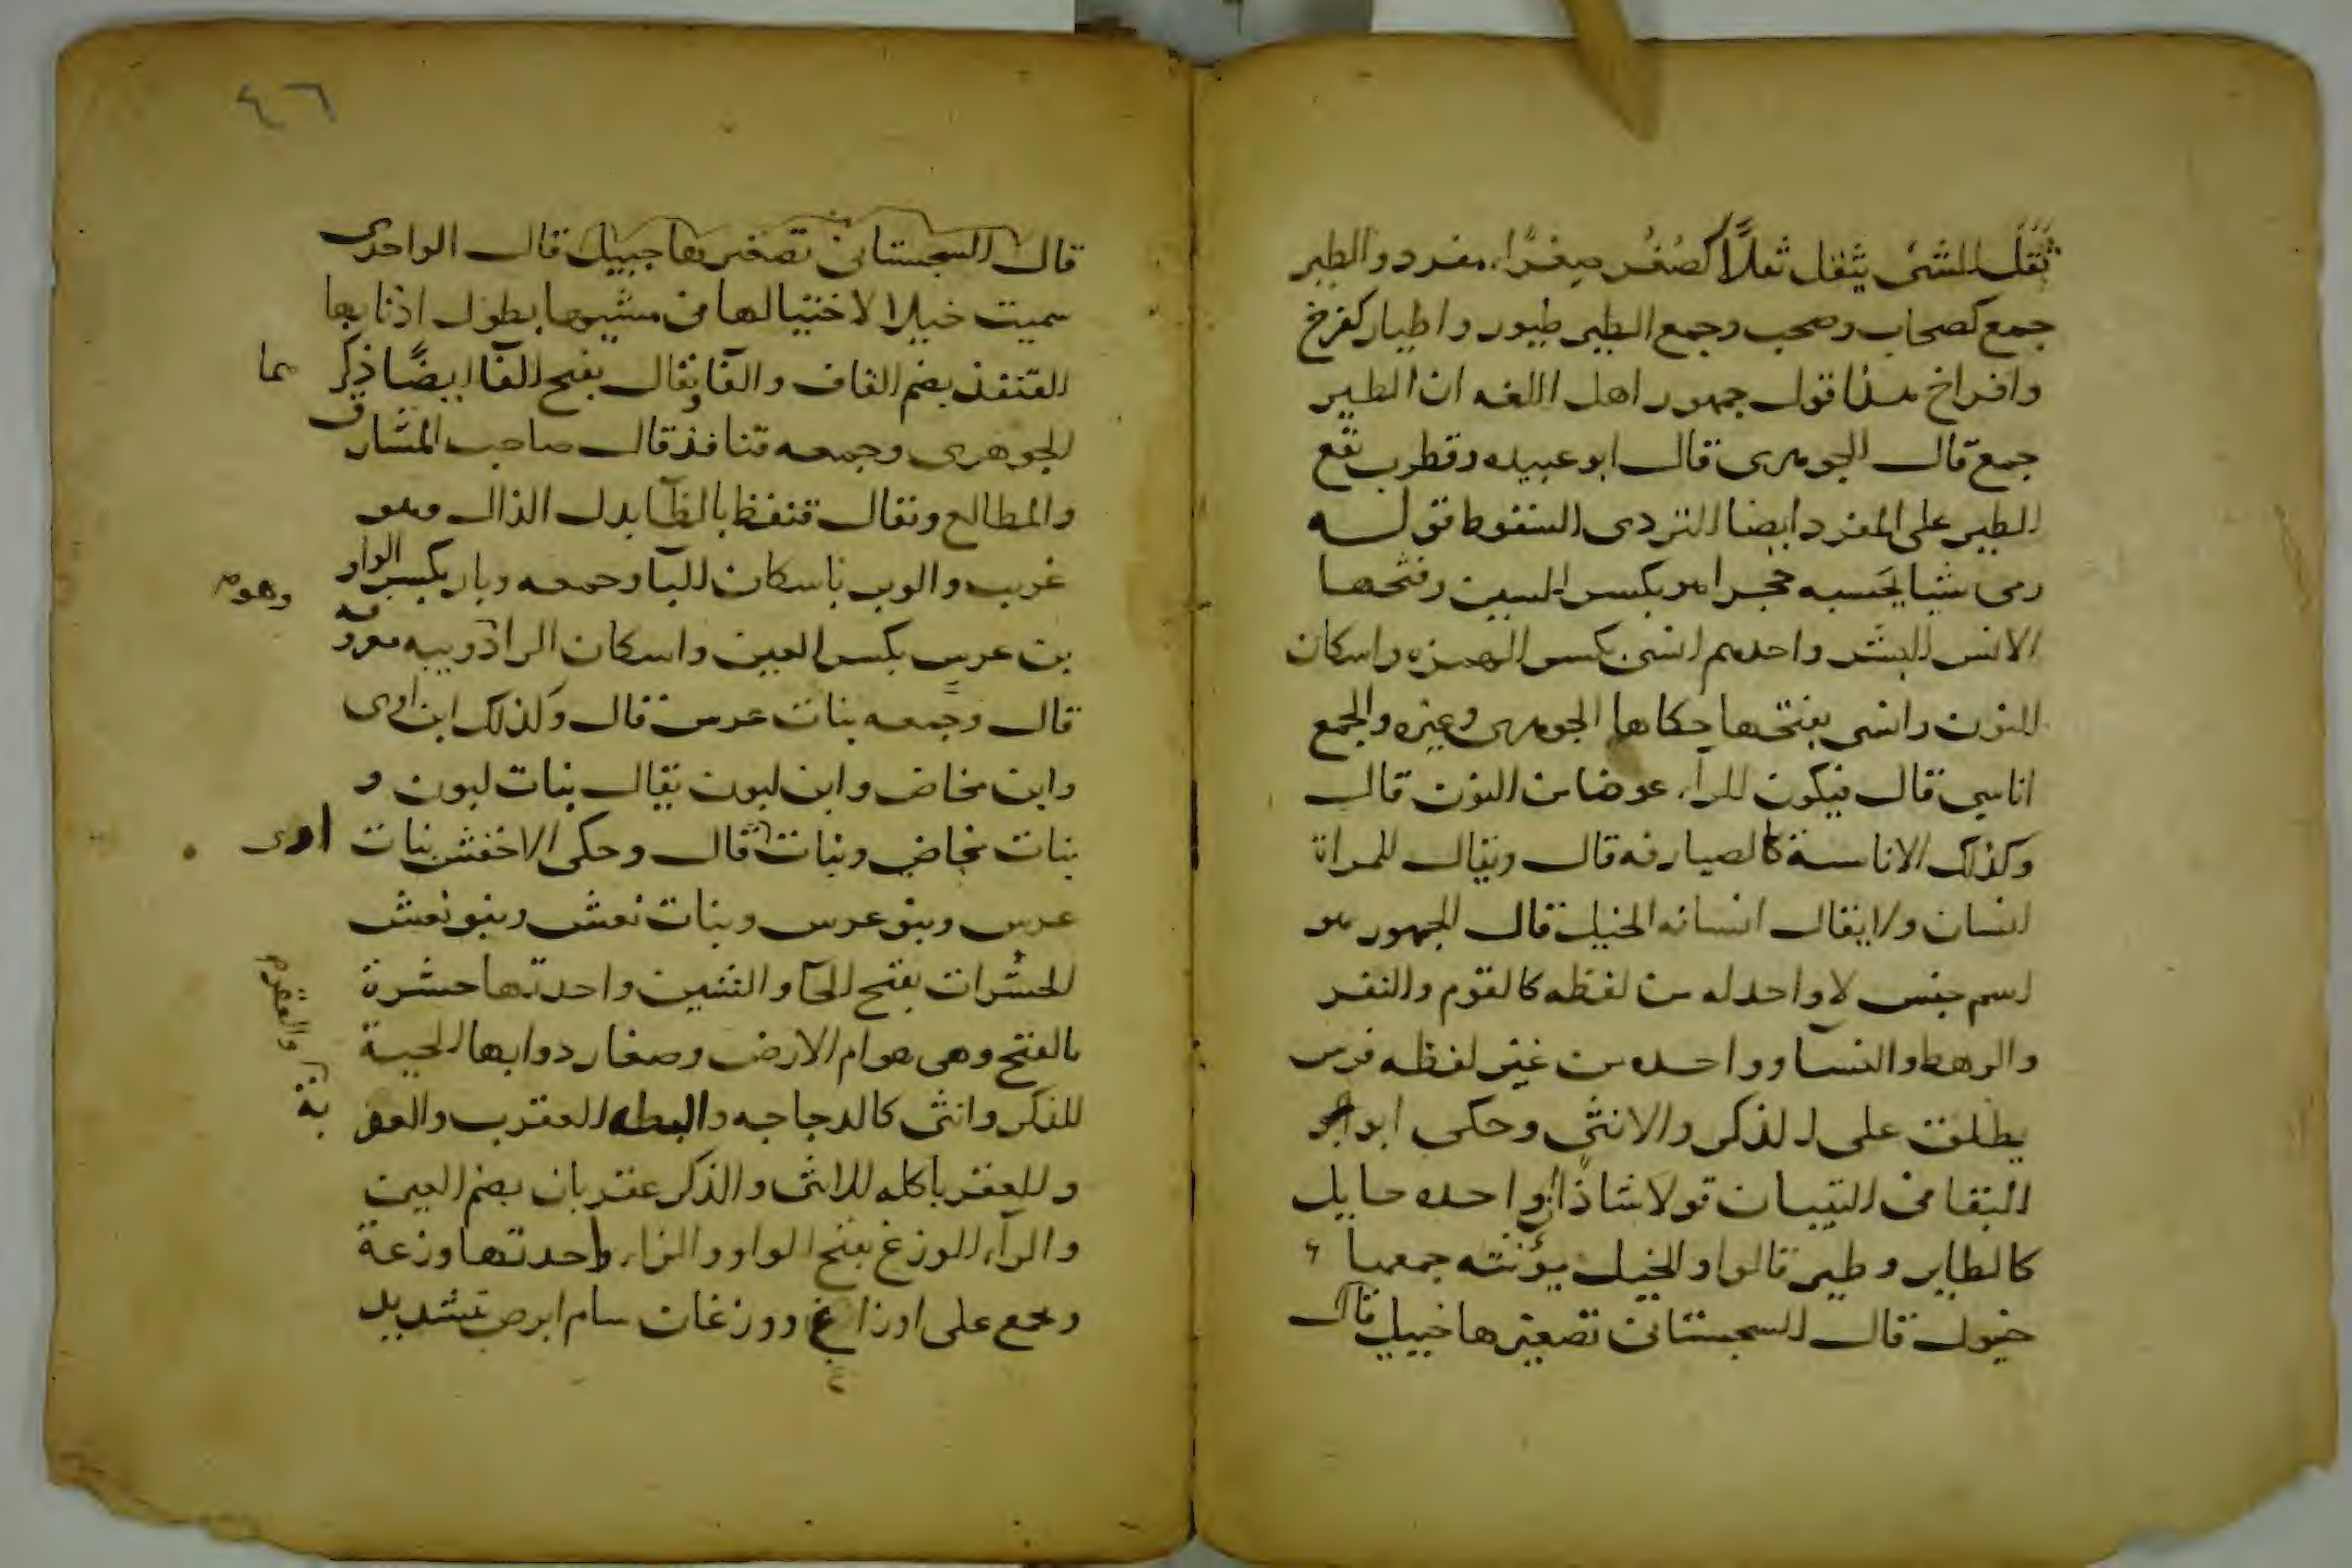 ثَقُلَ الشئ يثقل ثقلًا كصَغُر صِغَرًا مفرد والطير
جمع كصحاب وصحب وجمع الطير طيور واطيار كفرخ
وافراخ هذا قول جمهور اهل اللغه ان الطير
جمع قال الجوهرى قال ابو عبيده وقطرب يقع
الطير على المفرد ايضا التردى السقوط قولـــه
رمى شيا يحسبه حجرا هو بكسر السين وفتحها
الانس البشر واحدهم انسى بكسر الهمزه واسكان
النون وانسى بفتحها حكاها الجوهرى وغيره والجمع
اناسي قال فيكون اليآء عوضا من النون قال
وكذلك الاناسية كالصيارفه قال ويقال للمراة
انسان ولا يقال انسانه الخيل قال الجمهور هو
اسم جنس لا واحد له من لفظه كالقوم والنفر
والرهط والنسآ وواحده من غير لفظه فرس
يطلق على الذكر والانثى وحكى ابو
البقا فى التبيان قولا شاذا ان واحده خايل
كالطاير وطير قالوا والخيل مؤنثه جمعها
خيول قال السجستانى تصغيرها خييل قال
٤٦
قال السجستانى تصغيرها خييل قال الواحدى
سميت خيلا لاختيالها فى مشيها بطول اذنابها
القنفذ بضم القاف والفآ ويقال بفتح الفآ ايضًا ذكرهما
الجوهرى وجمعه قنافذ قال صاحب المشارق
والمطالع ويقال قنفظ بالظآ بدل الذال وهو
غريب والوبر باسكان البآ وجمعه وبار بكسر الواو وهو
بن عرس بكسر العين واسكان الرا دويبه معروفه
قال وجمعه بنات عرس قال وكذلك ابن اوى
وابن مخاض وابن لبون يقال بنات لبون و
بنات مخاض وبنات اوى قال وحكى الاخفش بنات
عرس وبنو عرس وبنات نعش وبنو نعش
الحشرات بفتح الحآ والشين واحدتها حشرة
بالفتح وهى هوام الارض وصغار دوابها الحية
للذكر وانثى كالدجاجه والبطه العقرب والعقربة
وللعقرباكله للانثى والذكر عقربان بضم العين
والرآء الوزغ بفتح الواو والزاء واحدتها وزغة
وجمع على اوزاغ ووزغات سام ابرص بتشديد